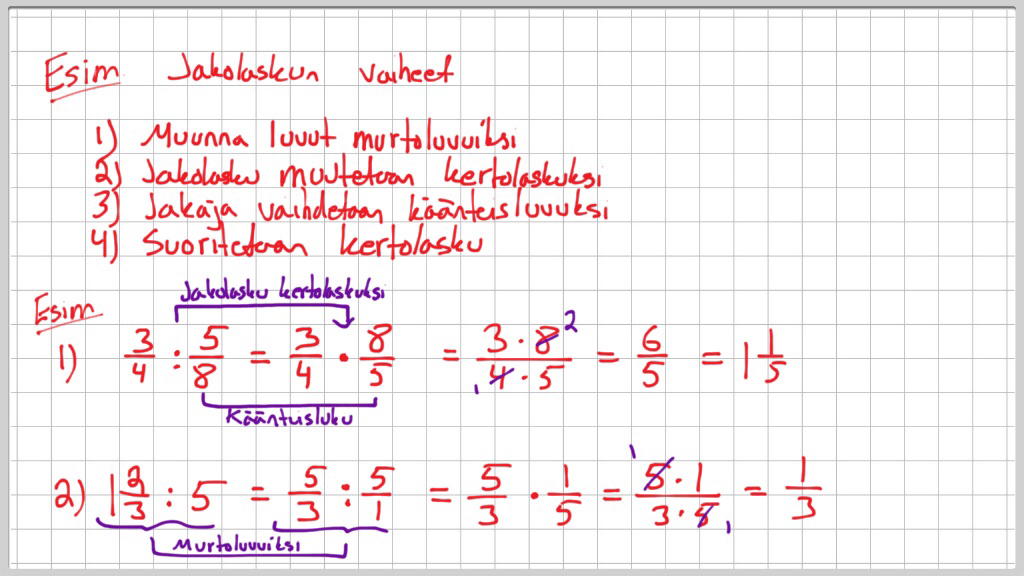 Esim Jakolaskun vaiheet
1) Muunna luvut murtoluvuiksi
2) Jakolasku muutetaan kertolaskuksi
3) Jakaja vaihdetaan käänteisluvuksi
4) Suoritetaan kertolasku
Esim
Jakolasku kertolaskuksi
1) 3/4 : 5/8 = 3/4 · 8/5 = 3 · 8 2 / 1 4 · 5 = 6/5 = 1 1/5
Kääntusluku
2) 1 2/3 : 5 = 5/3 : 5/1 = 5/3 · 1/5 = 1 5 · 1 / 3 · 5 1 = 1/3
Murtoluvuiksi